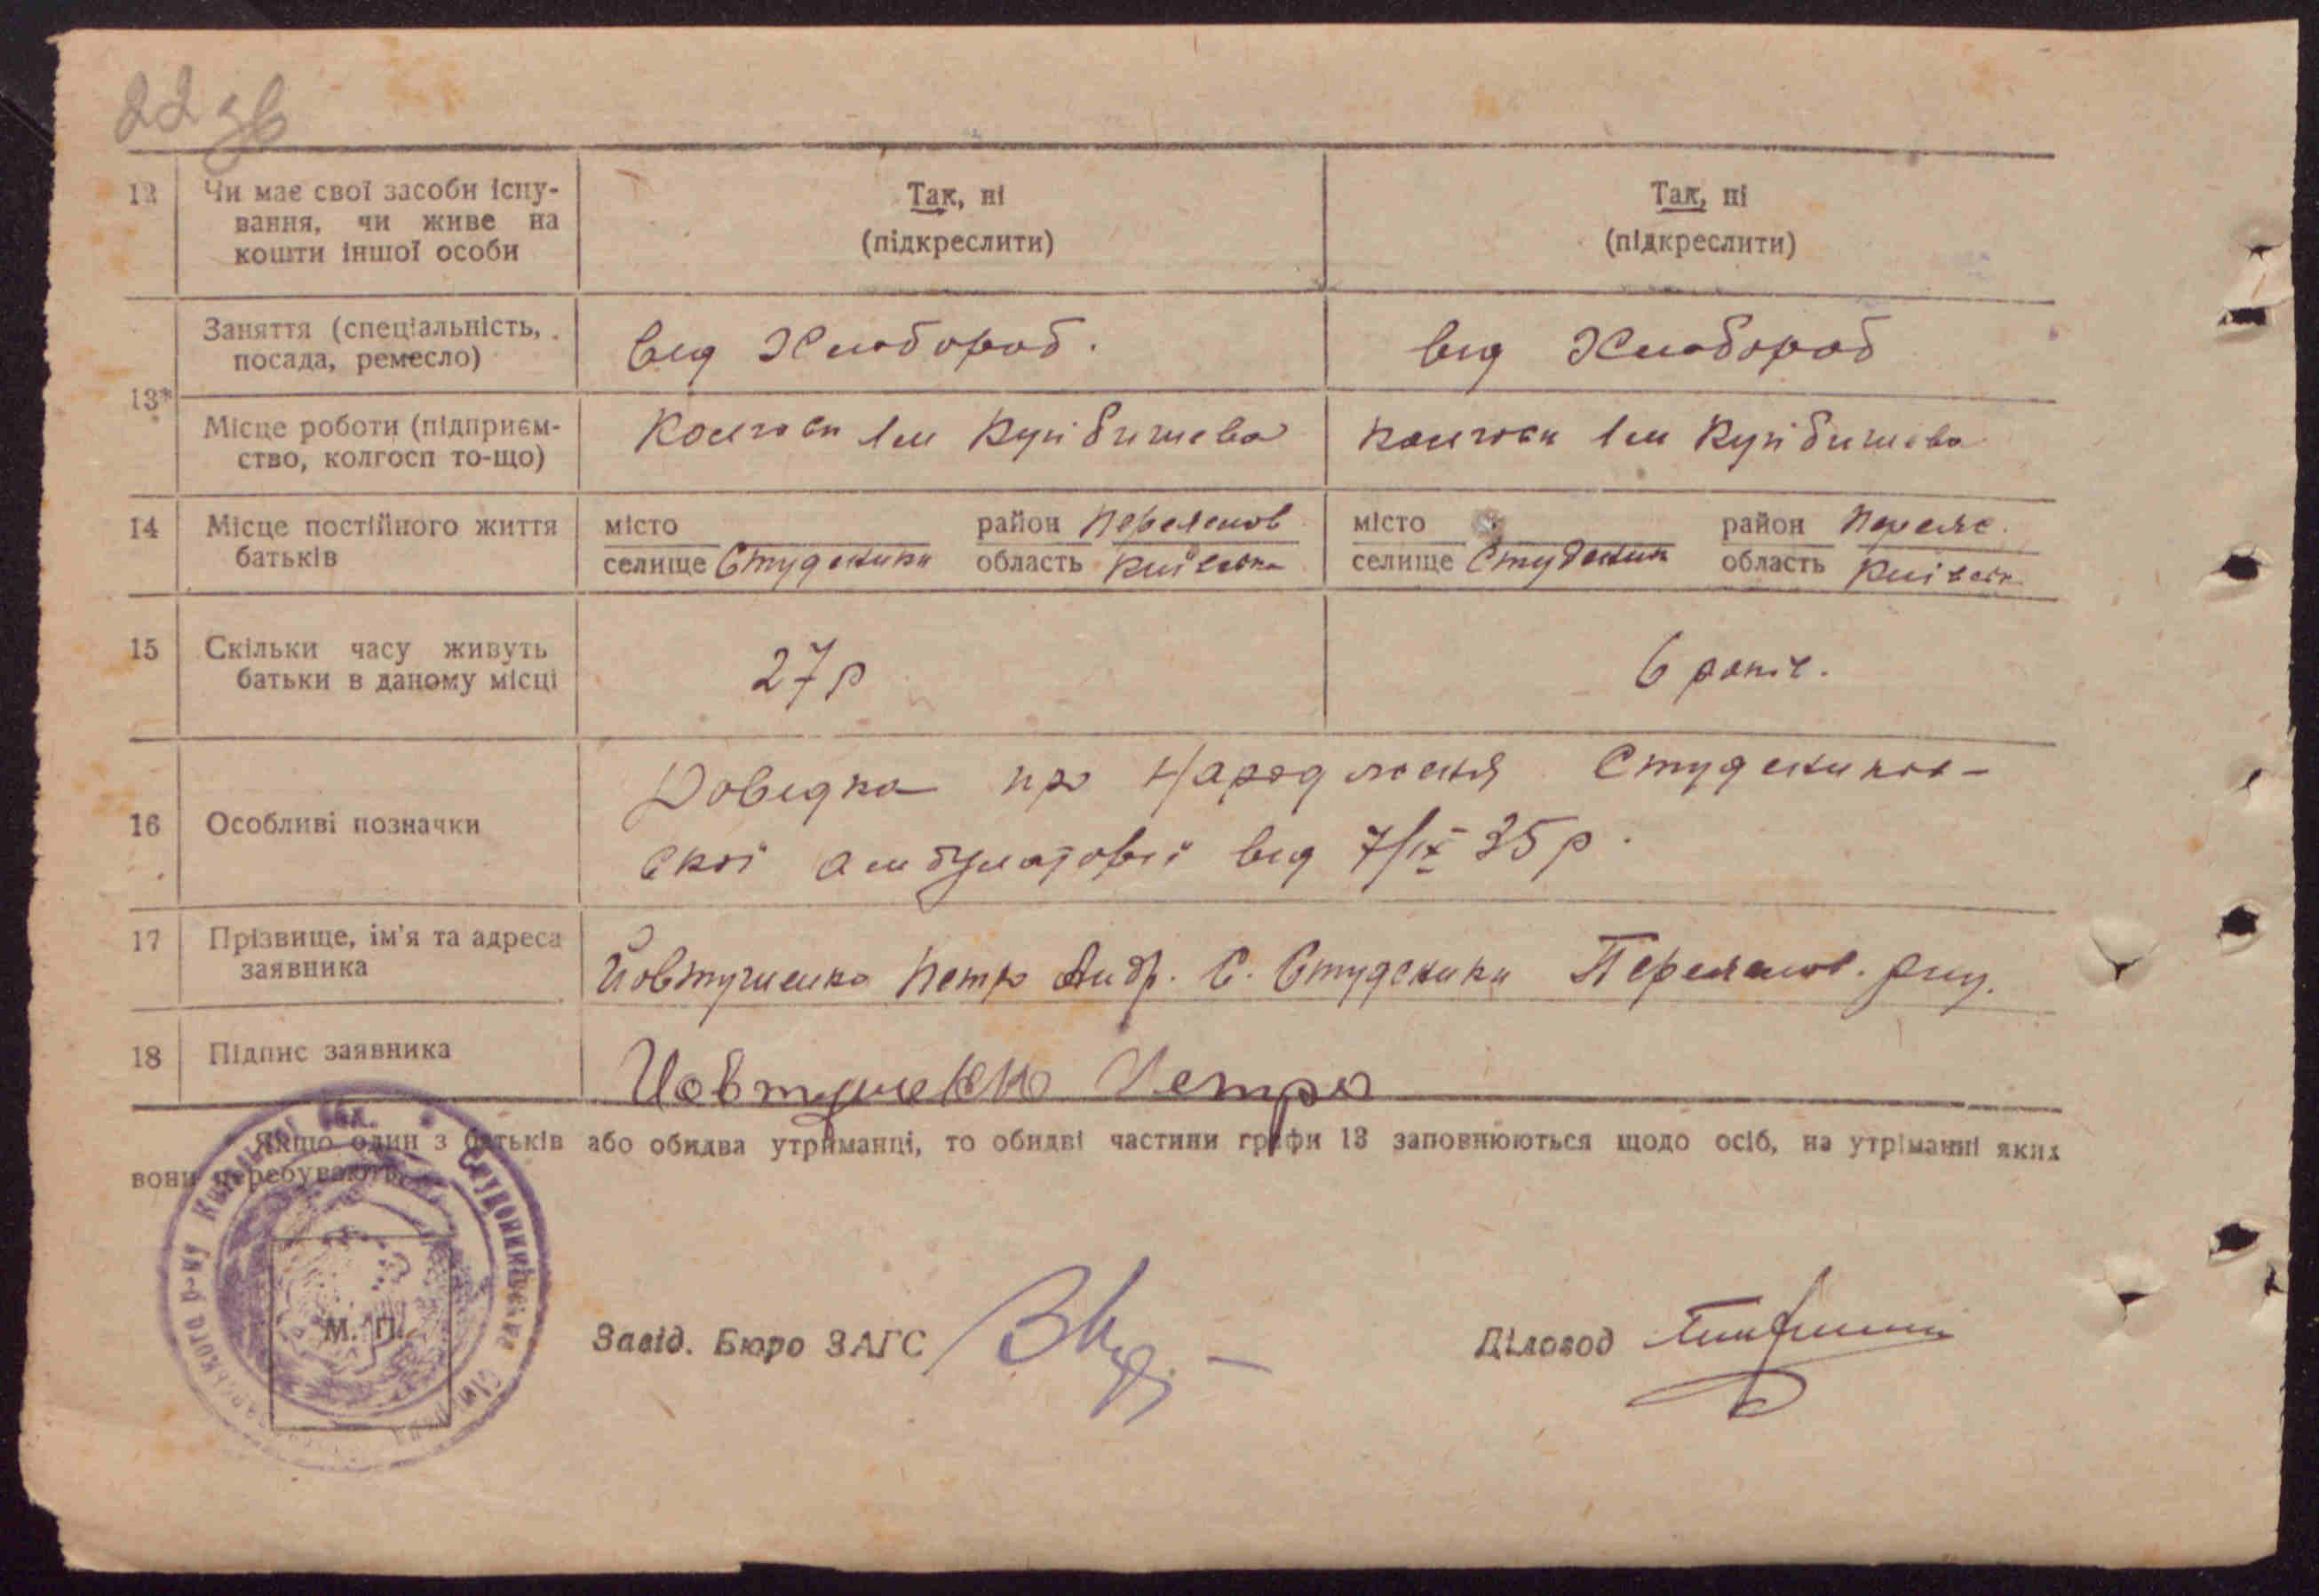 22 зв
12 Чи має свої засоби існу-
вання, чи живе на
кошти іншої особи
Так, ні
(підкреслити)
Так, ні
(підкреслити)
13*
Заняття (спеціальність,
посада, ремесло)
від Хлібороб.
від Хлібороб
Місце роботи (підприєм-
ство, колгосп то-що)
Колгосп Ім Куйбишева
Колгосп Ім Куйбишева
14 Місце постійного життя
батьків
місто
селище Студеники
район Переяслов
область Київська
місто
селище Студеник
район Переяс.
область Київськ
15 Скільки часу живуть
батьки в даному місці
27 р
6 років.
16 Особливі позначки
Довідка про Народження Студеников-
скої амбулаторії від 7/ІХ 35 р.
17 Прізвище, ім'я та адреса
заявника
Йовтушенко Петро Андр. С. Студеники Переяслов. рну.
18 Підпис заявника
Иовтушенко Петро
Якщо один з батьків або обидва утриманці, то обидві частини графи 13 заповнюються щодо осіб, на утріманні яких
вони перебувають.
М. П.
Завід. Бюро ЗАГС
Діловод